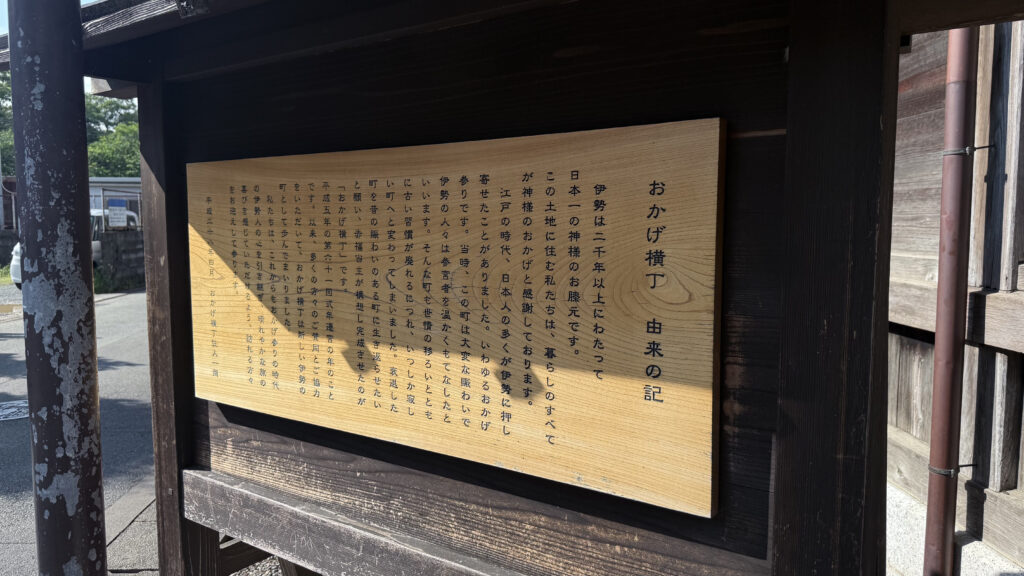 おかげ横丁　由来の記
伊勢は二千年以上にわたって
日本一の神様のお膝元です。
この土地に住む私たちは、暮らしのすべて
が神様のおかげと感謝しております。
江戸の時代、日本人の多くが伊勢に押し
寄せたことがありました。いわゆるおかげ
参りです。当時、この町は大変な賑わいで
伊勢の人々は参宮者を温かくもてなしたと
いいます。そんな町も世情の移ろいととも
に古い習慣が廃れるにつれ、いつしか寂し
い町へと変わってしまいました。衰退した
町を昔の賑わいのある町に生き返らせたい
と願い、赤福当主が構想し完成させたのが
「おかげ横丁」です。
平成五年の第六十一回式年遷宮の年のこと
です。以来、多くの方々のご愛顧とご協力
をいただいて、おかげ横丁は新しい伊勢の
町として歩んでまいりました。
私たちは、これからもおかげ参りの時代
の伊勢人の心を引き継ぎ、晴れやかな旅の
喜びを感じていただけるよう、訪れる方々
をお迎えして参ります。